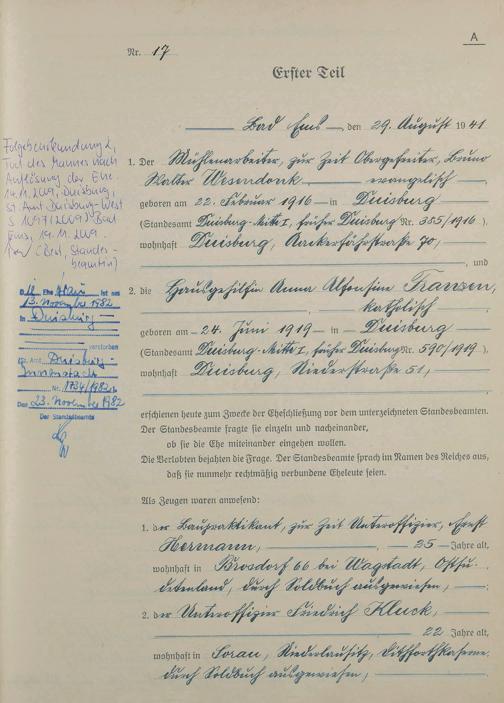 A
Nr. 17
Erster Teil
Bad Ems, den 29. August 1941
1. Der Mühlenarbeiter, zur Zeit Obergefreiter, Bruno
Walter Wesendonk evangelisch
geboren am 22. Februar 1916 in Duisburg
(Standesamt Duisburg-Mitte I, früher Duisburg Nr. 385/1916)
wohnhaft Duisburg, 70,
, und
2. die Hausgehilfin Anna Alfonsine Franzen,
katholisch
geboren am 24. Juni 1919 in Duisburg
(Standesamt Duisburg-Mitte I, früher Duisburg Nr. 590/1919)
wohnhaft Duisburg, Niederstraße 51,
erschienen heute zum Zwecke der Eheschließung vor dem unterzeichneten Standesbeamten.
Der Standesbeamte fragte sie einzeln und nacheinander,
ob sie die Ehe miteinander eingehen wollen.
Die Verlobten bejahten die Frage. Der Standesbeamte sprach im Namen des Reiches aus,
daß sie nunmehr rechtmäßig verbundene Eheleute seien.
Als Zeugen waren anwesend:
1. der Baupraktikant, zur Zeit Unteroffizier, Ernst
Hermann, 25 Jahre alt,
wohnhaft in Brosdorf 66 bei Wagstadt, Ostsu-
detenland, durch Soldbuch ausgewiesen,
2. der Unteroffizier Friedrich Kluck,
22 Jahre alt,
wohnhaft in Sorau, Niederlausitz, Kaserne
durch Soldbuch ausgewiesen,
Folgebeurkundung 2,
Tod des Mannes nach
Auflösung der Ehe.
14.11.2009, Duisburg,
St. Amt Duisburg-West
S 1097/2009. Bad
Ems, 19.11.2009.
(Best, Standes-
beamtin)
D. Ehefrau ist am
13. November 1982
in Duisburg-
verstorben
Amt Duisburg-
Nr. 1734/1982
Den 23. November 1982
Der Standesbeamte